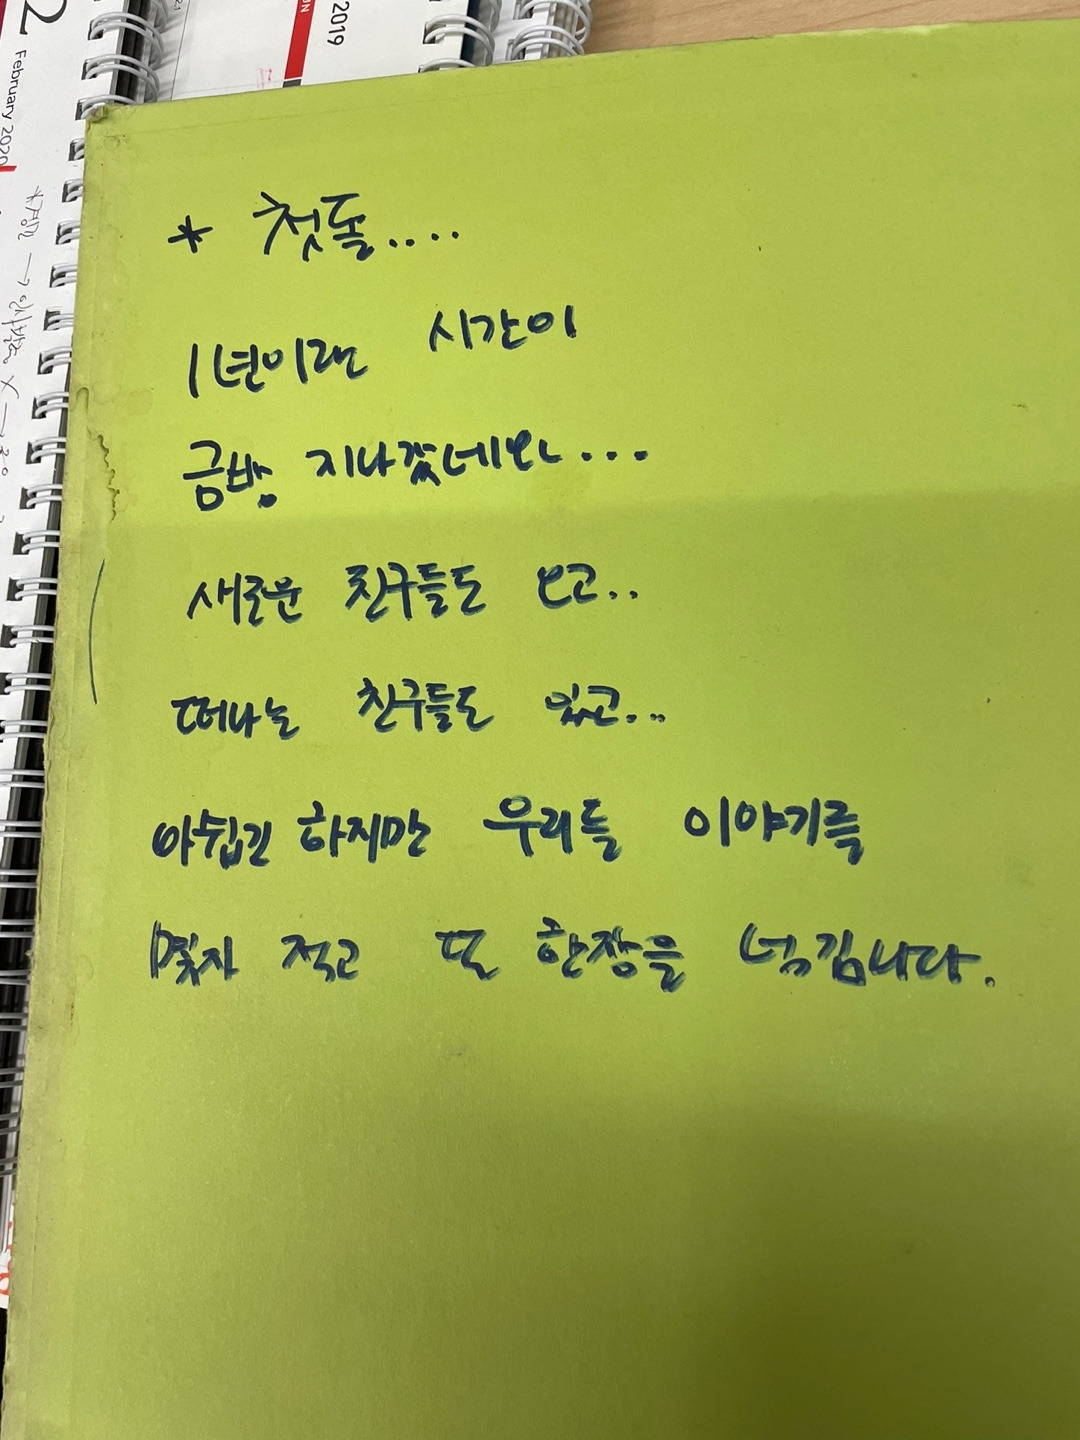 2
February 2020
2019
* 첫돌....
1년이란 시간이
금방 지나갔네요...
새로운 친구들도 오고..
떠나는 친구들도 있고...
아쉽긴 하지만 우리들 이야기를
몇자 적고 또 한장을 넘김니다.